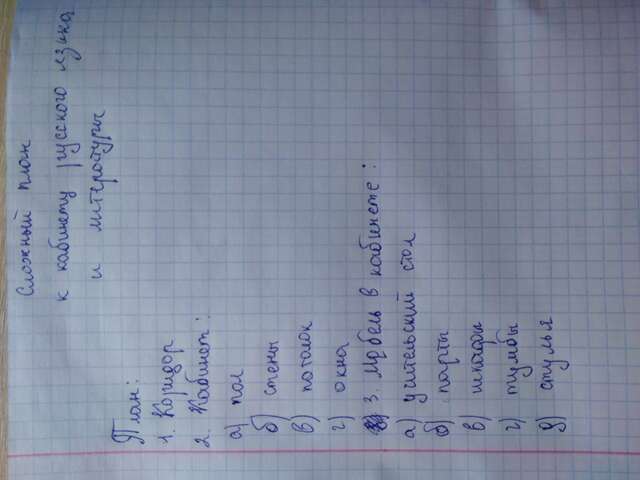 Сложный план
к кабинету русского языка
и литературы
План:
1. Коридор
2. Кабинет:
а) пол
б) стены
в) потолок
г) окна
3. Мебель в кабинете:
а) учительский стол
б) парты
в) шкафы
г) тумбы
д) стулья